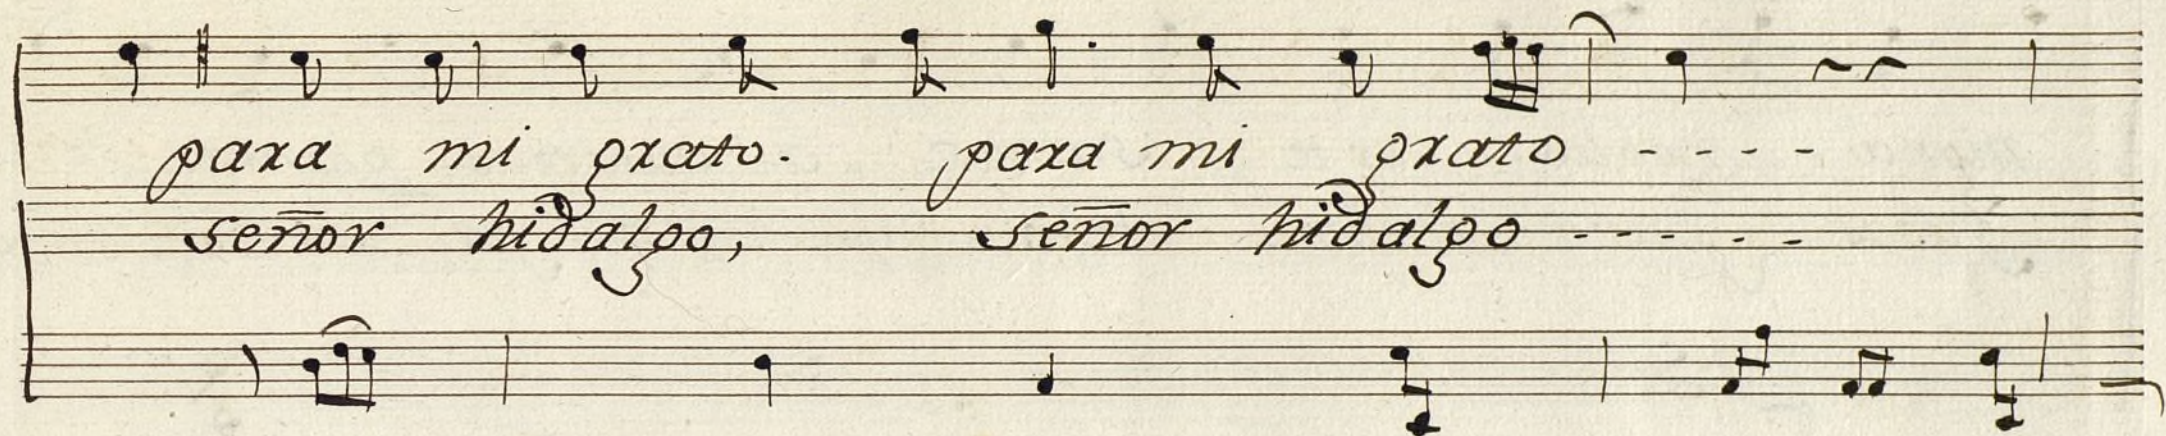 para mi grato. para mi grato - - - -
señor hidalgo, señor hidalgo - - - - -